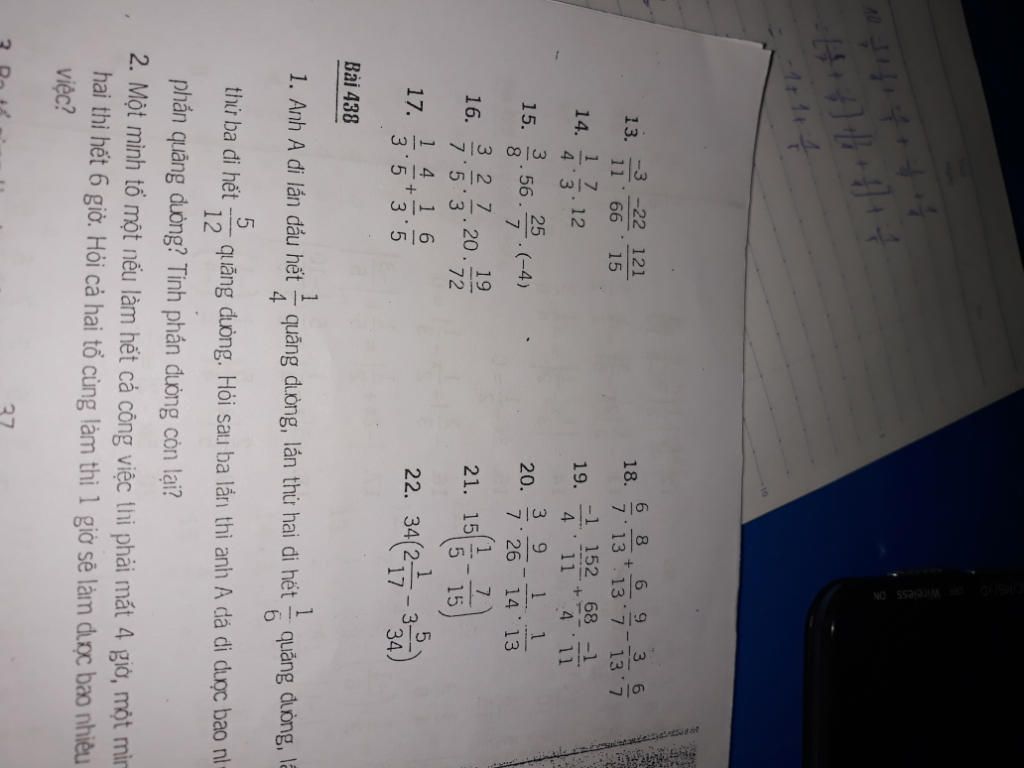 13. \frac{-3}{11} \cdot \frac{-22}{66} \cdot \frac{121}{15}
14. \frac{1}{4} \cdot \frac{7}{3} \cdot 12
15. \frac{3}{8} \cdot 56 \cdot \frac{25}{7} \cdot (-4)
16. \frac{3}{7} \cdot \frac{2}{5} \cdot \frac{7}{3} \cdot 20 \cdot \frac{19}{72}
17. \frac{1}{3} \cdot \frac{4}{5} + \frac{1}{3} \cdot \frac{6}{5}
18. \frac{6}{7} \cdot \frac{8}{13} + \frac{6}{13} \cdot \frac{9}{7} - \frac{3}{13} \cdot \frac{6}{7}
19. \frac{-1}{4} \cdot \frac{152}{11} + \frac{68}{4} \cdot \frac{-1}{11}
20. \frac{3}{7} \cdot \frac{9}{26} - \frac{1}{14} \cdot \frac{1}{13}
21. 15(\frac{1}{5} - \frac{7}{15})
22. 34(2\frac{1}{17} - 3\frac{5}{34})
Bài 438
1. Anh A đi lần đầu hết \frac{1}{4} quãng đường, lần thứ hai đi hết \frac{1}{6} quãng đường,
thứ ba đi hết \frac{5}{12} quãng đường. Hỏi sau ba lần thì anh A đã đi được bao
phần quãng đường? Tính phần đường còn lại?
2. Một mình tổ một nếu làm hết cả công việc thì phải mất 4 giờ, một
hai thì hết 6 giờ. Hỏi cả hai tổ cùng làm thì 1 giờ sẽ làm được bao nhiêu
việc?
37
Wireless
OFF
ON